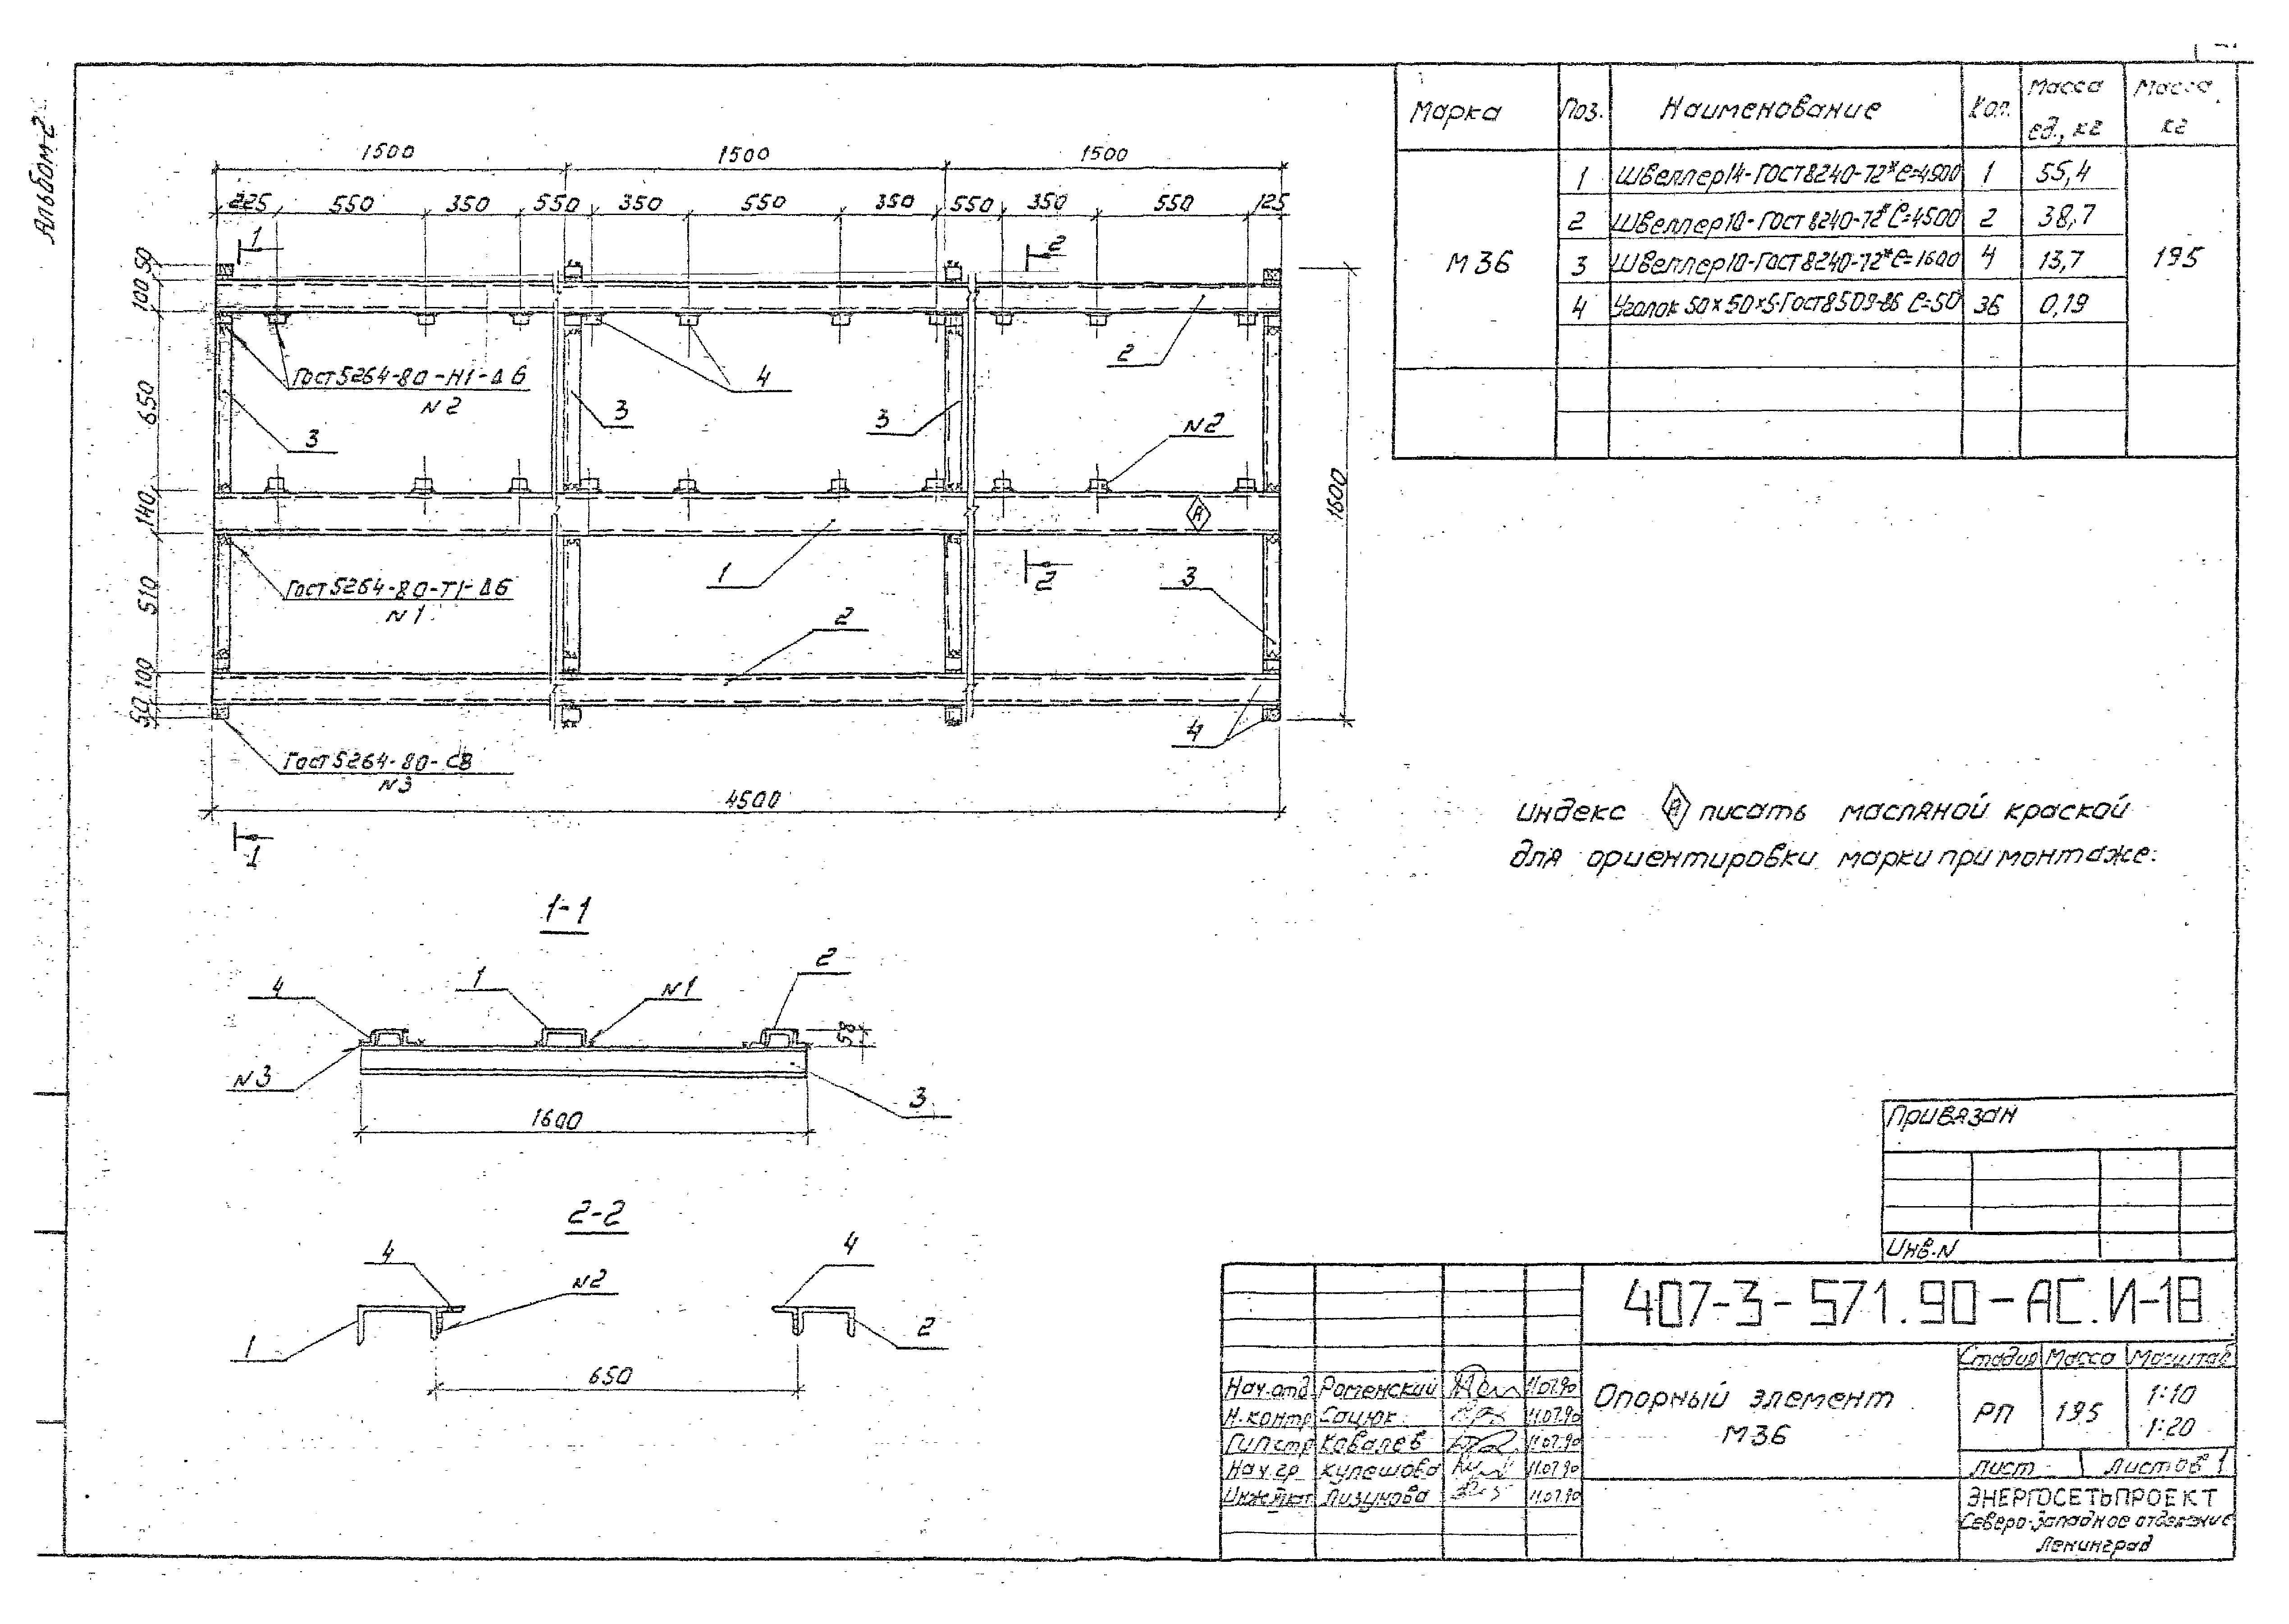 Альбом-2
1500 1500 1500
225 550 350 550 350 550 350 550 350 550 125
1 2
50
100
650
140
510
100
50
1600
Гост 5264-80-Н1-Δ6
N2
3 3 4 3 2
N2
А
Гост 5264-80-Т1-Δ6
N1
1 2 3
2
4
Гост 5264-80-С8
N3
4500
1
1-1
4 1 N1 2
58
N3 3
1600
2-2
4 4
N2
1 2
650
Марка Поз. Наименование Кол. Масса ед., кг Масса кг
М36 195
1 Швеллер 14-ГОСТ 8240-72* ℓ=4500 1 55,4
2 Швеллер 10-Гост 8240-72* ℓ=4500 2 38,7
3 Швеллер 10-Гост 8240-72* ℓ=1600 4 13,7
4 Уголок 50×50×5-Гост 8509-86 ℓ=50 36 0,19
Индекс А писать масляной краской
для ориентировки марки при монтаже.
Привязан
Инв.N
407-3-571.90-АС.И-18
Нач.отд. Роменский 11.07.90
Н.контр Сацюк 11.07.90
ГИП стр Ковалев 11.07.90
Нач.гр. Кулешова 11.07.90
Инж.1кат Лизунова 11.07.90
Опорный элемент
М36
Стадия Масса Масштаб
РП 195 1:10
1:20
Лист Листов 1
ЭНЕРГОСЕТЬПРОЕКТ
Северо-западное отделение
Ленинград